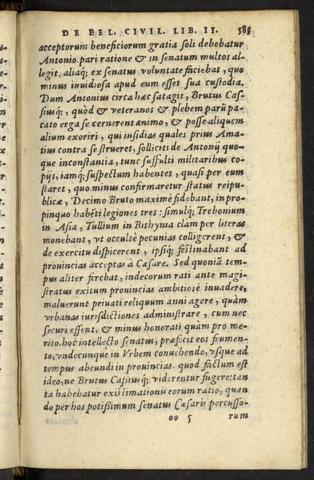 DE BEL. CIVIL. LIB. II. 585
acceptorum beneficiorum gratia soli debebatur
Antonio. pari ratione & in senatum multos al-
legit. aliaq; ex senatus voluntate faciebat, quo
minus inuidiosa apud eum esset sua custodia.
Dum Antonius circa hæc satagit, Brutus Cas-
siusq; quòd & veteranos & plebem parū pa-
cato erga se cernerent animo, & posse aliquem
alium exoriri, qui insidias quales prius Ama-
tius contra se strueret, solliciti de Antonij quo-
que inconstantia, tunc suffulti militaribus co-
pijs, iamq; suspectum habentes, quasi per eum
staret, quo minus confirmaretur status reipu-
blicæ, Decimo Bruto maximè fidebant, in pro-
pinquo habēti legiones tres: simulq; Trebonium
in Asia, Tullium in Bithynia clàm per literas
monebant, vt occultè pecunias colligerent, &
de exercitu dispicerent, ipsiq; festinabant ad
prouincias acceptas à Cæsare. Sed quoniā tem-
pus aliter ferebat, indecorum rati ante magi-
stratus exitum prouincias ambitiosè inuadere,
maluerunt priuati reliquum anni agere, quàm
vrbanas iurisdictiones administrare, cum nec
securi essent, & minus honorati quàm pro me-
rito. hoc intellecto senatus, præfecit eos frumen-
to, vndecunque in Vrbem conuehendo, vsque ad
tempus abeundi in prouincias. quod factum est
ideo, ne Brutus Cassiusq; viderentur fugere: tan
ta habebatur existimationis eorum ratio, quan
do per hos potissimum senatus Cæsaris percusso-
oo 5 rum